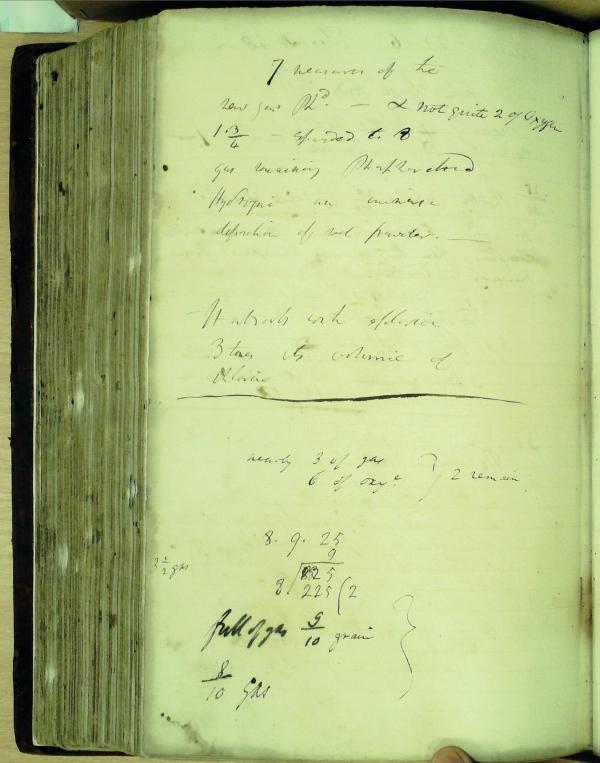 7 measures of the
new gas Ph^d. — & not quite 2 of Oxygen
1 · 3/4 — expanded to 8
gas remaining Phosphoretted
Hydrogene an immense
deposition of red powder. —
It absorbs with explosion
3 times its volume of
Chlorine
nearly 3 of gas
6 of oxy^e } 2 remain
8. 9. 25
9
3 1/2 gas
225
8 / 225 ( 2
full of gas 9/10 grain
8/10 gas